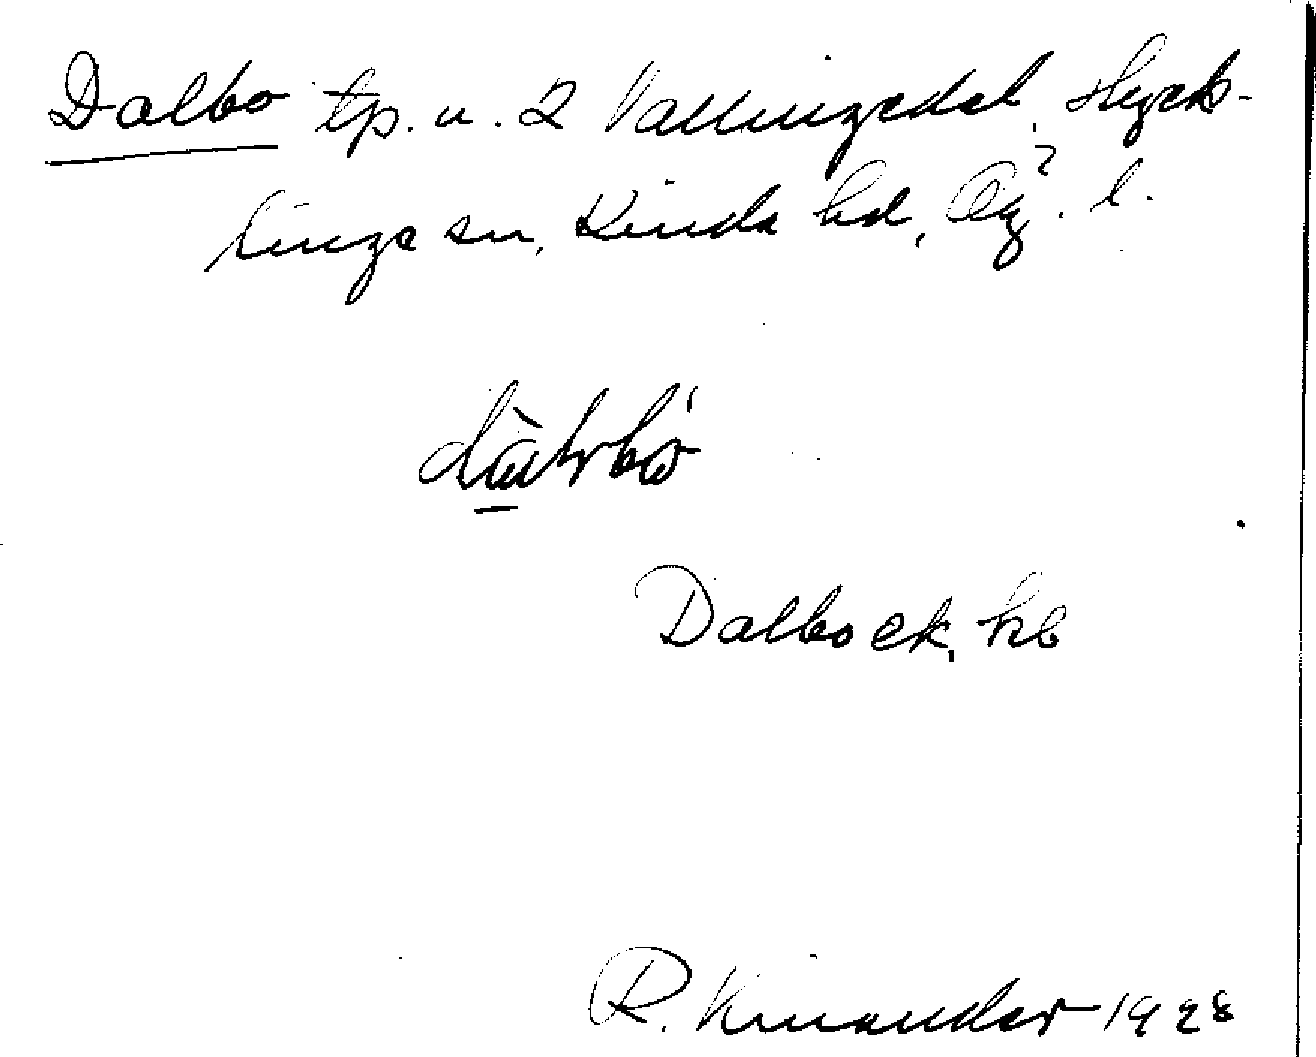 Dalbo tp. u. 2 Vallingedal, Hyck-
linge sn, Kinda hd, Ög. l.
Dalbo ek, hb
R. Kinander 1928